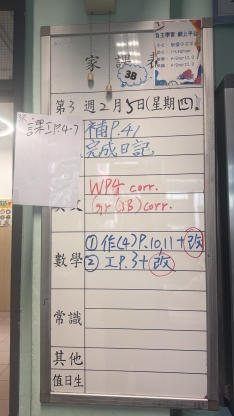 家課表
3B
自主學習 網上平台
第3週2月5日(星期四)
課工P.4-7
補P.41
完成日記
WP4 corr.
Gr(3B) corr.
數學
① 作(4)P.10,11+改
② 工P.3+改
常識
其他
值日生